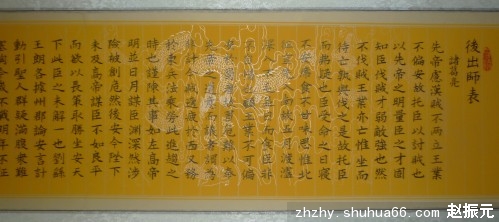 後出師表
諸葛亮
先帝慮漢賊不兩立王業
不偏安故託臣以討賊也
以先帝之明量臣之才固
知臣伐賊才弱敵強也然
不伐賊王業亦亡惟坐而
待亡孰與伐之是故託臣
而弗疑也臣受命之日寢
不安席食不甘味思惟北
征宜先入南故五月渡瀘
深入不毛并日而食臣非
不自惜也顧王業不可偏
安於蜀都故冒危難以奉
先帝之遺意而議者謂為
非計今賊適疲於西又務
於東兵法乘勞此進趨之
時也謹陳其事如左高帝
明並日月謀臣淵深然涉
險被創危然後安今陛下
未及高帝謀臣不如良平
而欲以長策取勝坐定天
下此臣之未解一也劉繇
王朗各據州郡論安言計
動引聖人群疑滿腹眾難
塞胸今歲不戰明年不征
赵振元
zhzhy.shuhua66.com